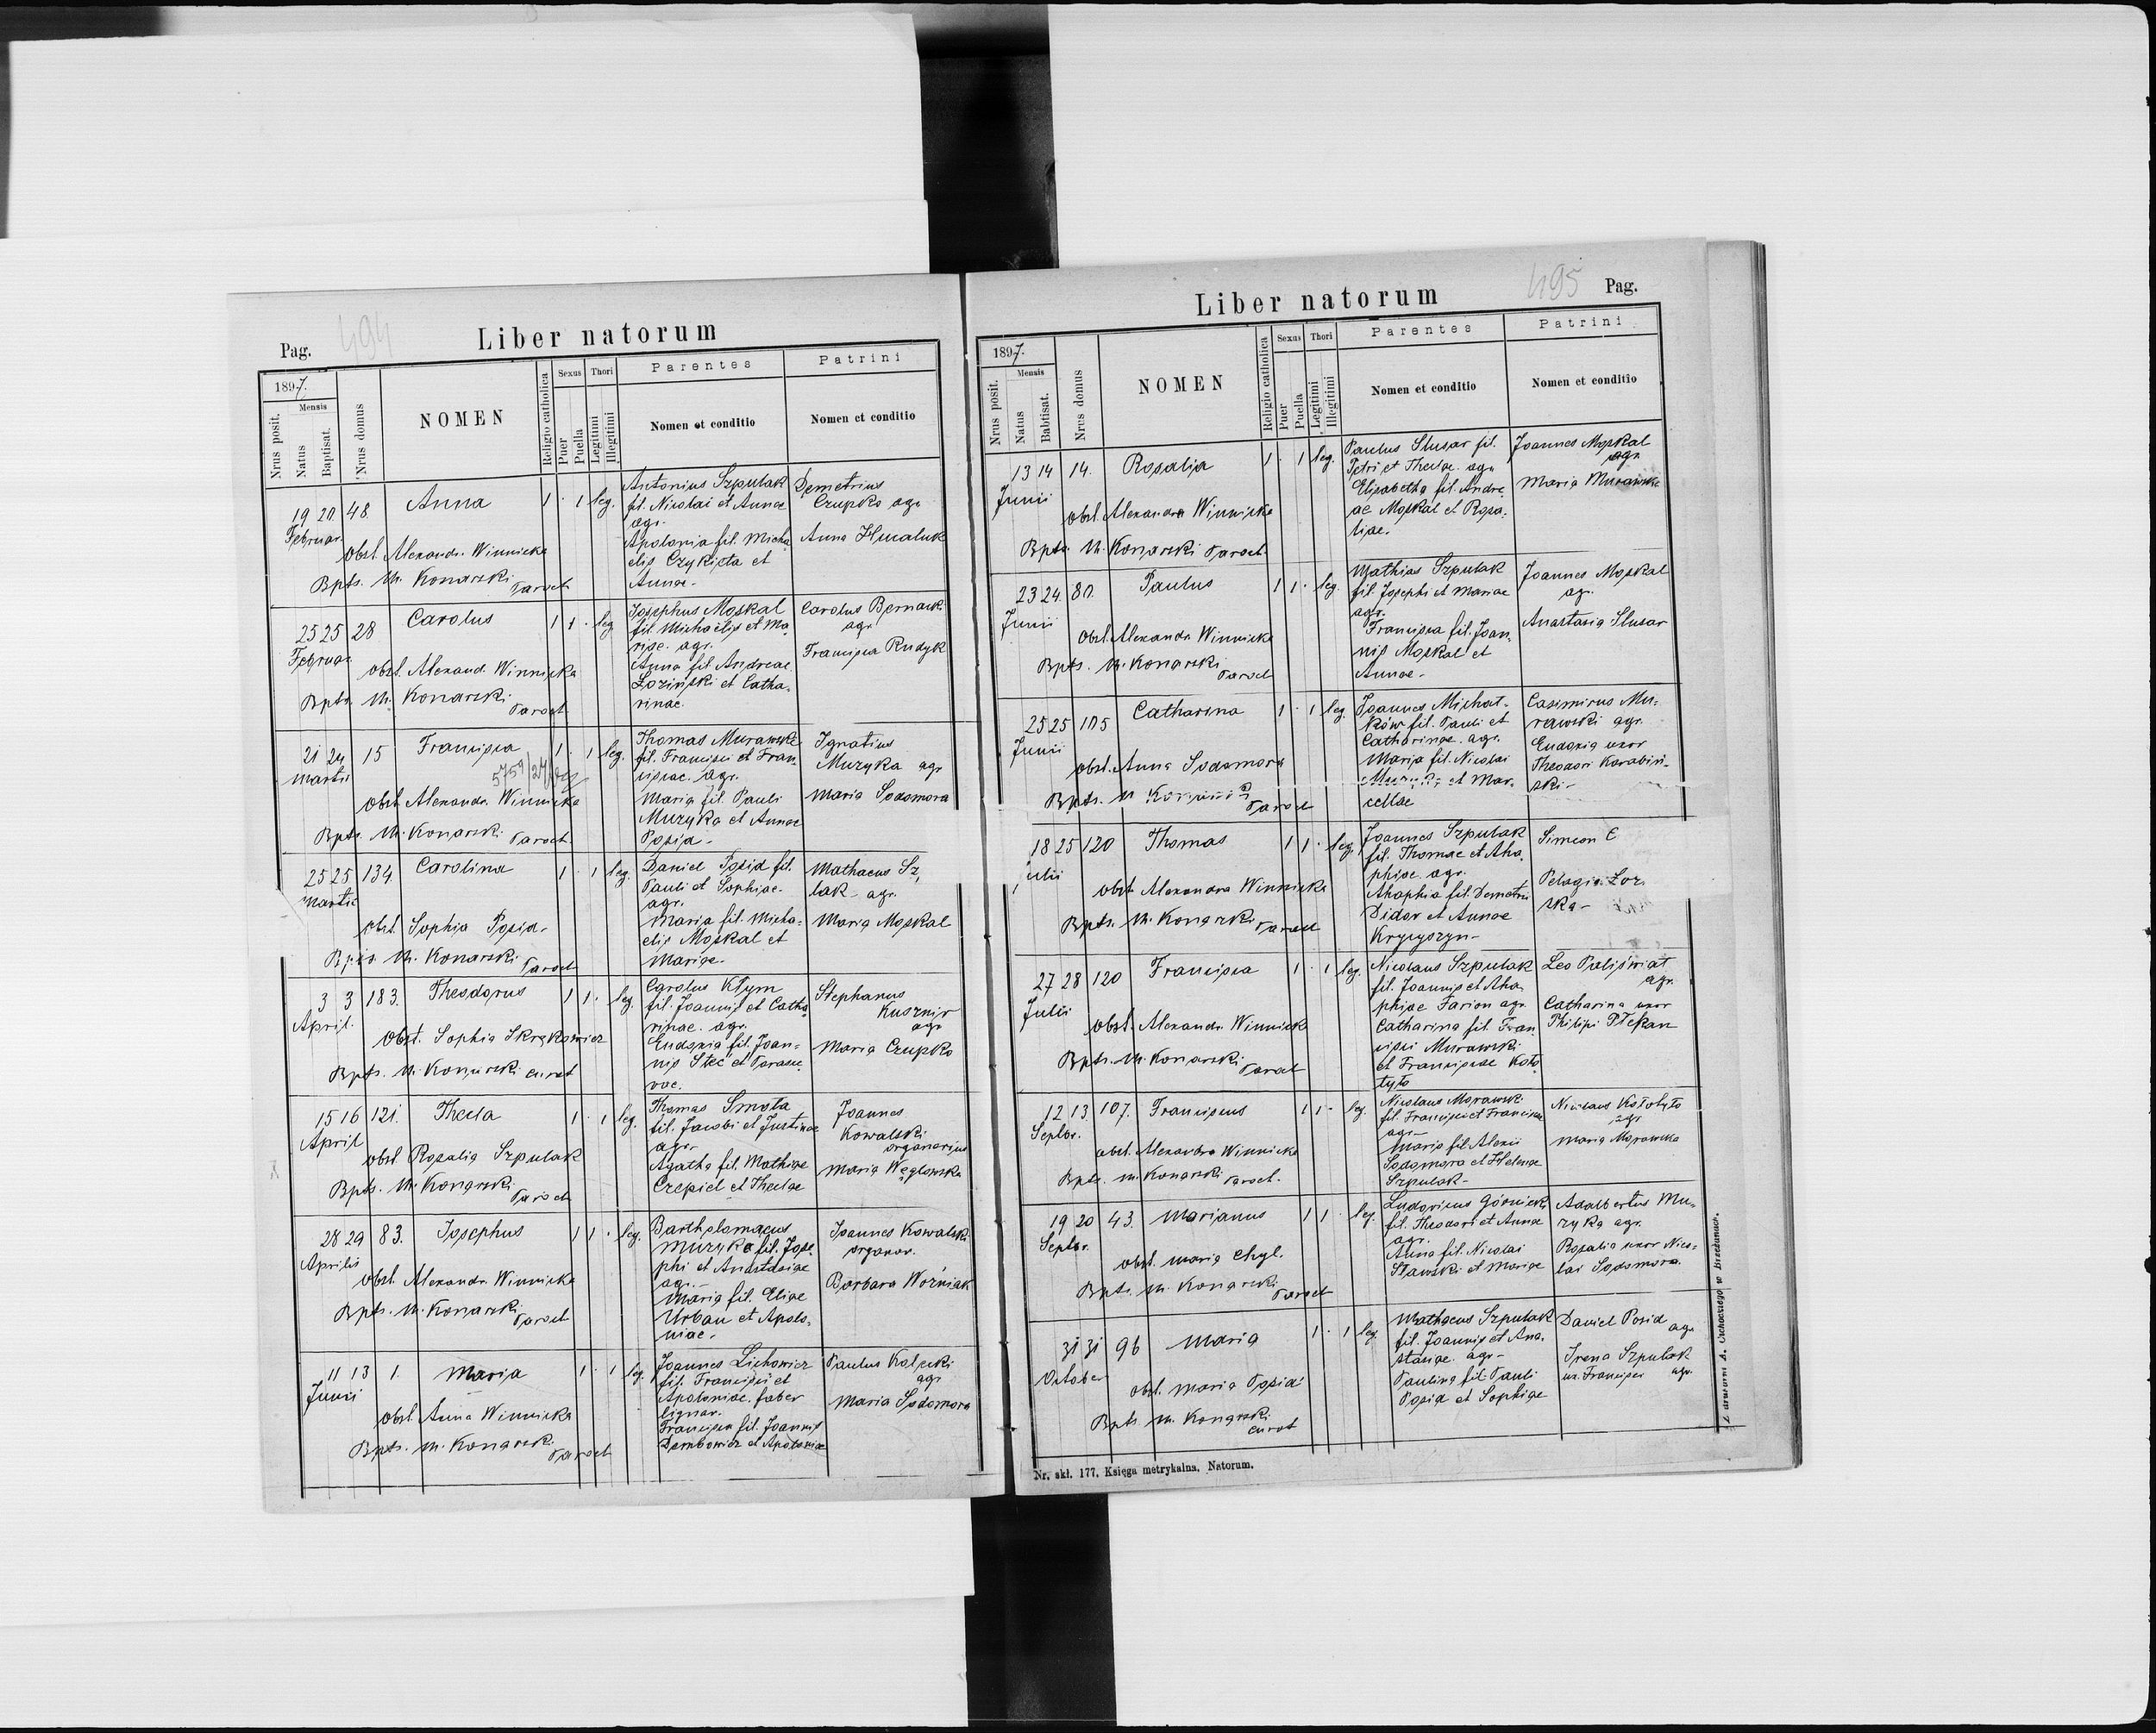 Pag. 494
Liber natorum
1897.
Nrus posit.
Mensis
Natus
Baptisat.
Nrus domus
NOMEN
Religio catholica
Sexus
Puer
Puella
Thori
Legitimi
Illegitimi
Parentes
Nomen et conditio
Patrini
Nomen et conditio
19 20 48. Anna 1 · 1 leg.
Februar.
Obst. Alexandr. Winnicka
Bpts. M. Konarski
Paroch
Antonius Szpulak
fil. Nicolai et Annae
agr.
Apolonia fil. Micha
elis Czykieta et
Annae.
Demetrius
Czupko agr.
Anna Hucaluk
25 25 28 Carolus 1 1 · leg
Februar.
obst. Alexand. Winnicka
Bpts. M. Konarski
Paroch
Josephus Moskal
fil. Michaelis et Ma
riae. agr.
Anna fil. Andreae
Łoziński et Catha,
rinae.
Carolus Bernack
agr.
Francisca Rudyk
21 24 15 Francisca 1 · 1 leg.
Martii
Obst. Alexandr. Winnicka
Bpts. M. Konarski Paroch.
Thomas Murawski
fil. Francisci et Fran
ciscae. agr.
Maria fil. Pauli
Muzyka et Annae
Posid -
Ignatius
Muzyka agr
Maria Sodomora
25 25 134 Carolina 1 · 1 leg.
Martii
obst. Sophia Posid -
Bpts. M. Konarski
Paroch
Daniel Posid fil.
Pauli et Sophiae.
agr.
Maria fil. Micha-
elis Moskal et
Mariae.
Mathaeus Sz,
lak - agr.
Maria Moskal
3 3 183. Theodorus 1 1 · leg.
April.
Obst. Sophia Skrękowicz
Bpts. M. Konarski curat
Carolus Kłym
fil. Joannis et Catha
rinae. agr.
Eudoxia fil. Joan-
nis Stec et Parasce
vae.
Stephanus
Kusznir
agr
Maria Czupko
15 16 121. Thecla 1 · 1 leg.
April
obst. Rosalia Szpulak
Bpts. M. Konarski
Paroch
Thomas Smota
fil. Jacobi et Justinae
agr.
Agatha fil. Mathiae
Czepiel et Theclae
Joannes
Kowalski
organarius
Maria Węglowska
28 29 83. Josephus 1 1 · leg.
Aprilis
Obst. Alexandr. Winnicka
Bpts. M. Konarski
Paroch
Bartholomaeus
Muzyka fil. Jose
phi et Anastasiae
agr. -
Maria fil. Eliae
Urban et Apolo,
niae -
Joannes Kowalski
organar.
Barbara Woźniak
11 13 1. Maria 1 · 1 leg.
Junii
obst. Anna Winnicka
Bpts. M. Konarski.
Paroch
Joannes Lichowicz
fil. Francisci et
Apoloniae. faber
lignar.
Francisca fil. Joannis
Dembowicz et Apoloniae
Paulus Kolecki
agr
Maria Sodomora
Liber natorum
495 Pag.
1897.
Nrus posit.
Mensis
Natus
Babtisat.
Nrus domus
NOMEN
Religio catholica
Sexus
Puer
Puella
Thori
Legitimi
Illegitimi
Parentes
Nomen et conditio
Patrini
Nomen et conditio
13 14 14. Rosalia 1 · 1 leg.
Junii
Obst. Alexandra Winnicka
Bpts. M. Konarski Paroch.
Paulus Slusar fil.
Petri et Theclae. agr.
Elisabetha fil. Andre
ae Moskal et Rosa,
liae.
Joannes Moskal
agr.
Maria Murawska
23 24. 80. Paulus 1 1 · leg.
Junii
Obst. Alexandr. Winnicka
Bpts. M. Konarski
Paroch
Mathias Szpulak
fil. Josephi et Mariae
agr.
Francisca fil. Joan,
nis Moskal et
Annae -
Joannes Moskal
agr.
Anastasia Slusar
25 25 105 Catharina 1 · 1 leg.
Junii
obst. Anna Sodomora
Bpts. M Konarski
Paroch
Joannes Michał-
ków fil. Pauli et
Catharinae. agr.
Maria fil. Nicolai
et Mar.
cellae
Casimirus Mu-
rawski agr.
Eudoxia uxor
Theodori Karabin-
ski -
18 25 120 Thomas 1 1 · leg.
ulii
obst. Alexandra Winnicka
Bpts. M. Konarski
Paroch
Joannes Szpulak
fil. Thomae et Aha,
phiae. agr.
Ahaphia fil. Demetrii
Didor et Annae
Krysyozyn -
Simeon C
Pelagia Łoz.
ska -
27 28 120 Francisca 1 · 1 leg.
Julii
obst. Alexandr. Winnicka
Bpts. M. Konarski
Paroch
Nicolaus Szpulak
fil. Joannis et Aha
phiae Farion agr.
Catharina fil. Fran
cisci Murawski
et Franciscae Koło
tyło
Leo Paliświat
agr.
Catharina uxor
Philipi Płekan
12 13. 107. Franciscus 1 1 · leg.
Septbr.
obst. Alexandra Winnicka
Bpts. M. Konarski Paroch.
Nicolaus Morawski
fil. Francisci et Franciscae
agr -
Maria fil. Alexii
Sodomora et Helenae
Szpulak -
Nicolaus Kołotyło
agr
Maria Morawska
19 20 43. Marianus 1 1 · leg.
Septbr.
obst. Maria Chyl.
Bpts. M. Konarski
Paroch
Ludovicus Górnicki
fil. Theodori et Annae
agr.
Anna fil. Nicolai
Stawski et Mariae
Adalbertus Mu-
zyka agr.
Rosalia uxor Nico-
lai Sodomora.
31 31 96 Maria 1 · 1 leg.
October
obst. Maria Posid
Bpts M. Konarski
curat
Mathaeus Szpulak
fil. Joannis et Ana.
stasiae. agr -
Paulina fil. Pauli
Posid et Sophiae
Daniel Posid agr
Irena Szpulak
ux. Francisci agr.
Nr. skł. 177. Księga metrykalna. Natorum.